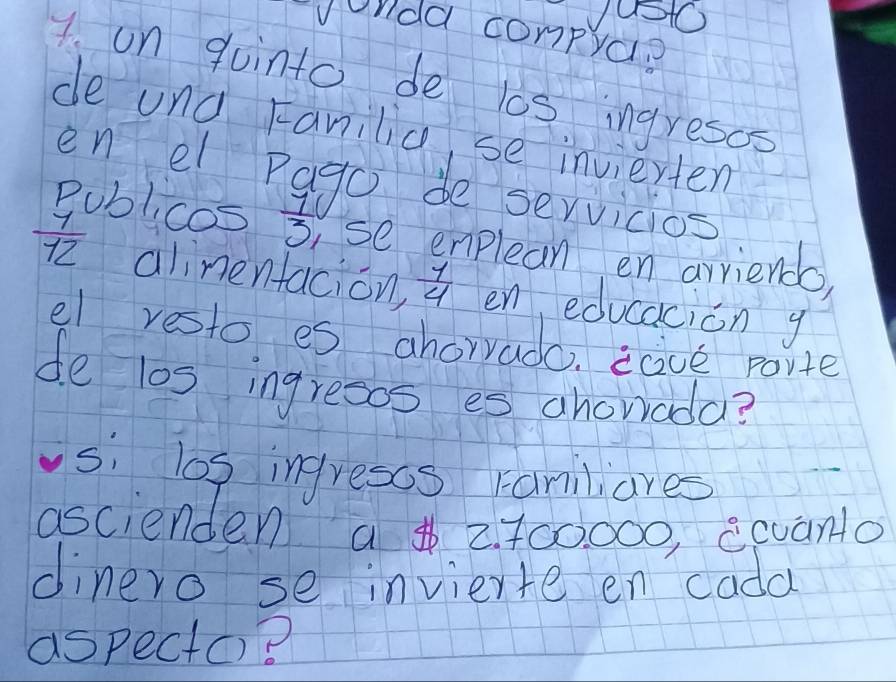 compra?
1. un quinto de los ingresos
de una Familia, se invierten
en el Pago de servicios
Publicos 1/3, se emplean en arriendo,
1/12 alimentación, 1/4 en educación y
el resto es ahorrado. ¿Qué parte
de los ingresos es ahorrada?
♥ Si los ingresos Familiares
ascienden a $ 2.700.000, ¿cuánto
dinero se invierte en cada
aspecto?